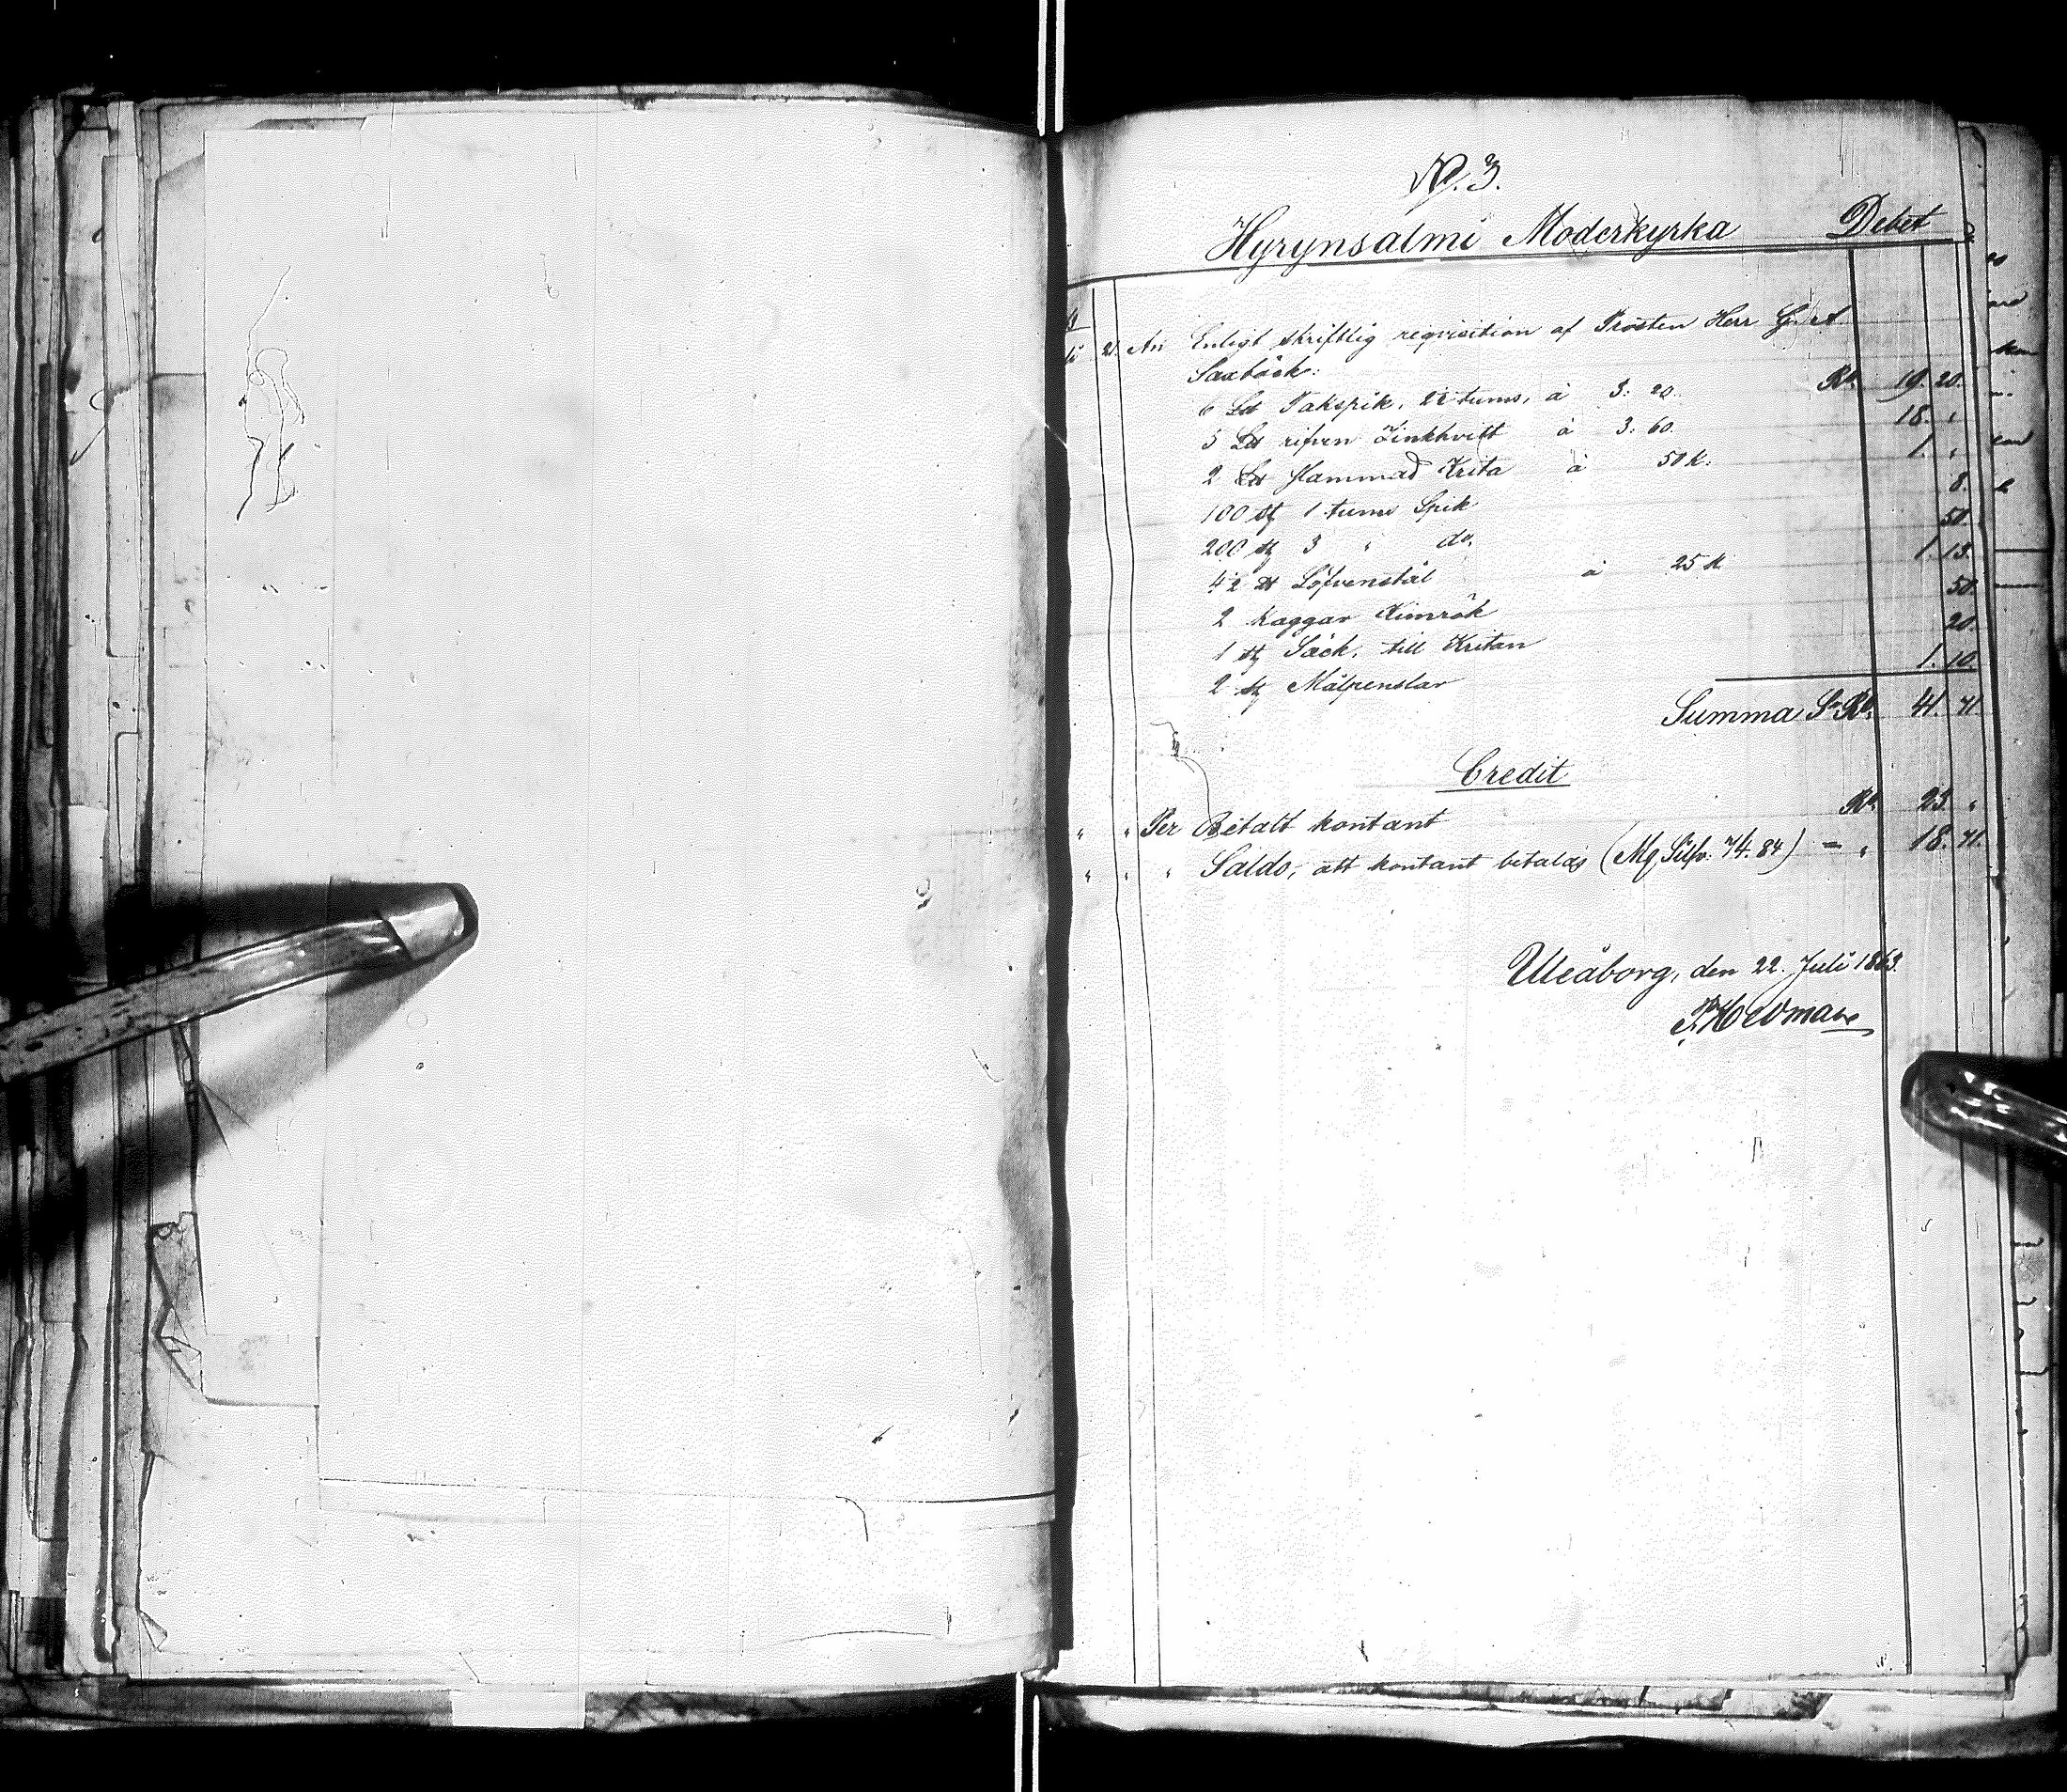 No. 3.
Hyrynsalmi Moderkyrka Debet
21. An Enligt skriftlig reqvisition af Prosten Herr G. A.
Saxbäck:
6 Ld Takspik, 2½ tums, à 3: 20. Rb. 19. 20.
5 Ld rifven Zinkhvitt à 3: 60. 18. "
2 Ld slammad Krita à 50 K. 1. "
100 st 1 tums Spik 8.
200 st 3 " do. 50.
4½ ℔ Löfvenstål à 25 K 1. 13.
2 kaggar Kimrök 50.
1 st Säck, till Kritan 20.
2 st Målpenslar 1. 10.
Summa S. Rb. 41. 71.
Credit
" " Per Betalt kontant Rb. 23. "
" " " Saldo, att kontant betalas (Mk Silfv: 74. 84) - " 18. 71.
Uleåborg, den 22. Juli 1863.